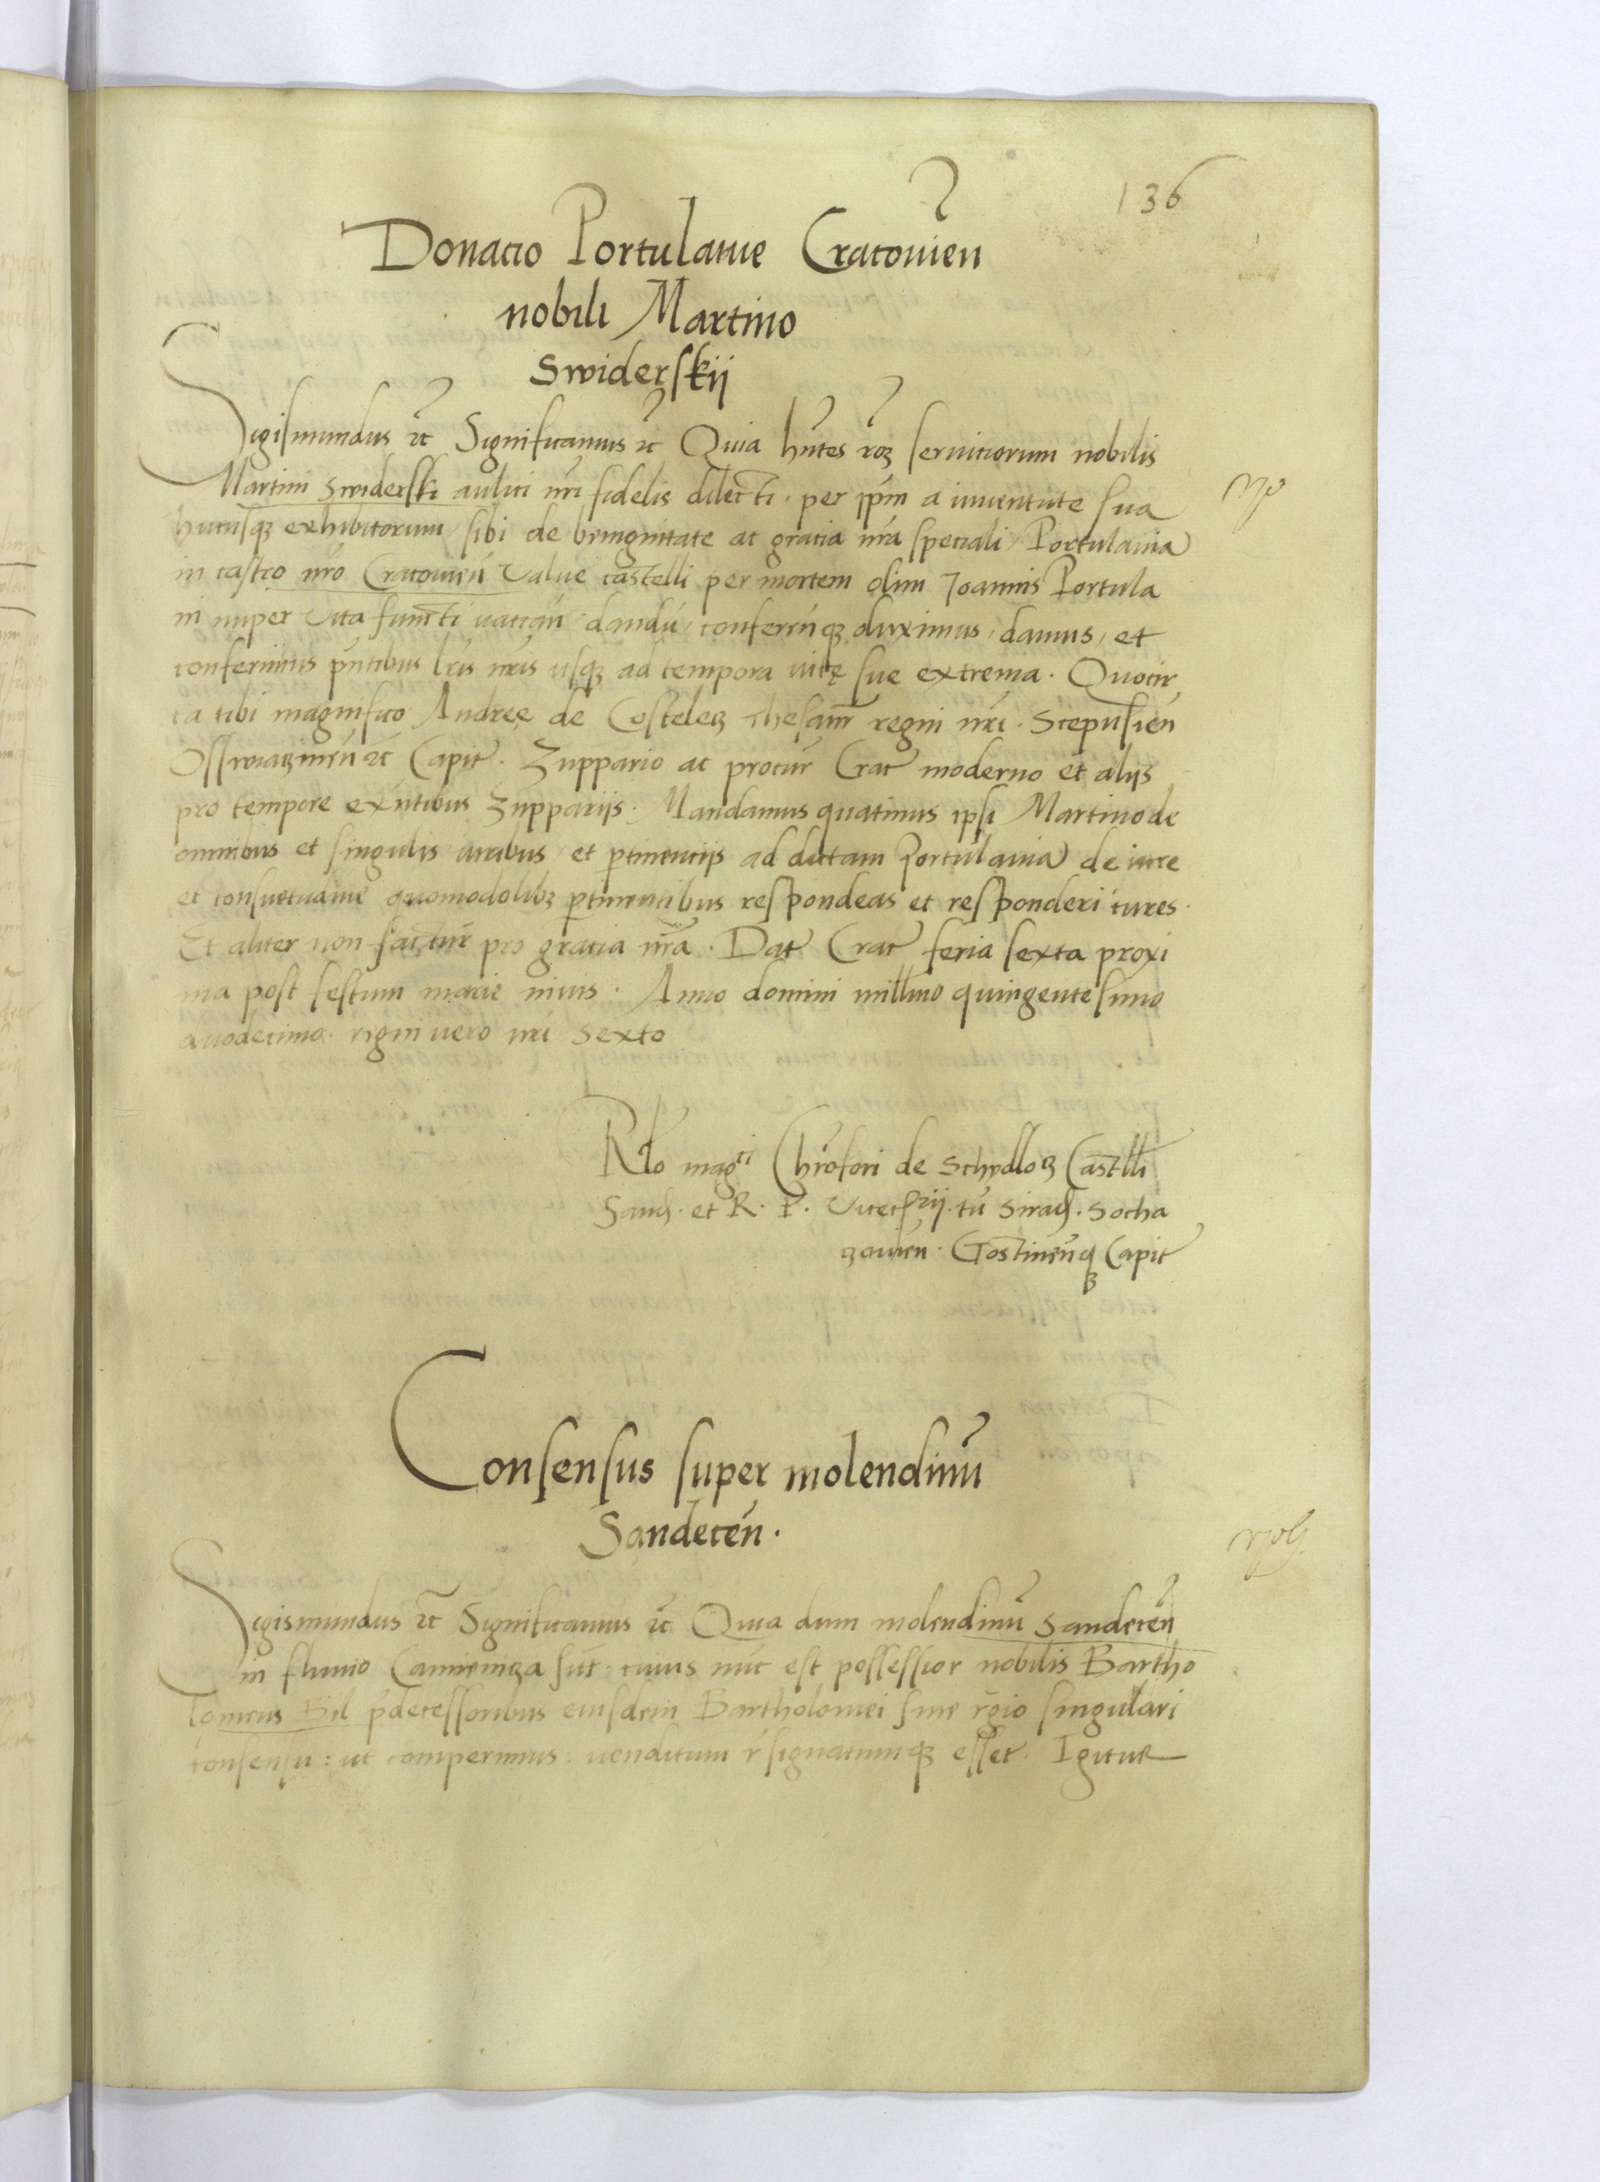 136
Donacio Portulanie Cracovien
nobili Martino
Swiderskij
Sigismundus etc Significamus etc Quia hn̄tes rōꝫ serviciorum nobilis
Martini Swiderski aulici nr̄i fidelis dilecti · per ip̄m a iuventute sua
hucusqꝫ exhibitorum / sibi de benignitate ac gracia nr̄a speciali / Portulania
in castro nr̄o Cracovien̄ valve castelli per mortem olim Joannis Portula
ni nuper vita functi vacan̄ · dandū / conferen̄qꝫ duximus / damus / et
conferimus pn̄tibus lr̄is nr̄is usqꝫ ad tempora vitę sue extrema · Quocir
ca tibi magnifico Andreę de Costelecz Thesaur̄ regni nr̄i · Scepusien̄
Osswiaczimen̄ etc Capit · Zuppario ac procur̄ Crac moderno et alijs
pro tempore exn̄tibus Zuppariis · Mandamus quatinus ipsi Martino de
omnibus et singulis iuribus et ꝑtinencijs ad dictam Portulania de iure
et consuetudine quomodolibꝫ ꝑtinentibus respondeas et responderi cures ·
Et aliter non factur̄ pro gracia nr̄a · Dat Crac feria sexta proxi
ma post festum marie nivis · Anno domini mill̄mo quingentesimo
duodecimo · regni vero nr̄i Sexto
Rl̄o mag^ci Chr̄ofori de Schydlovecz Castell̄i
Sand · et R · P · Vicecan̄rij · tū Sirad · Socha
czovien · Gostinen̄qꝫ Capit
Consensus super molendinū
Sandecen̄ ·
Sigismundus etc Significamus etc Quia dum molendinū Sandecen̄
in fluvio Camiennicza sit · cuius nūc est possessor nobilis Bartho
lomeus Bil p̄decessoribus eiusdem Bartholomei sine re̅gio singulari
consensu : ut comperimus : venditum r̄signatumqꝫ esset · Igitur